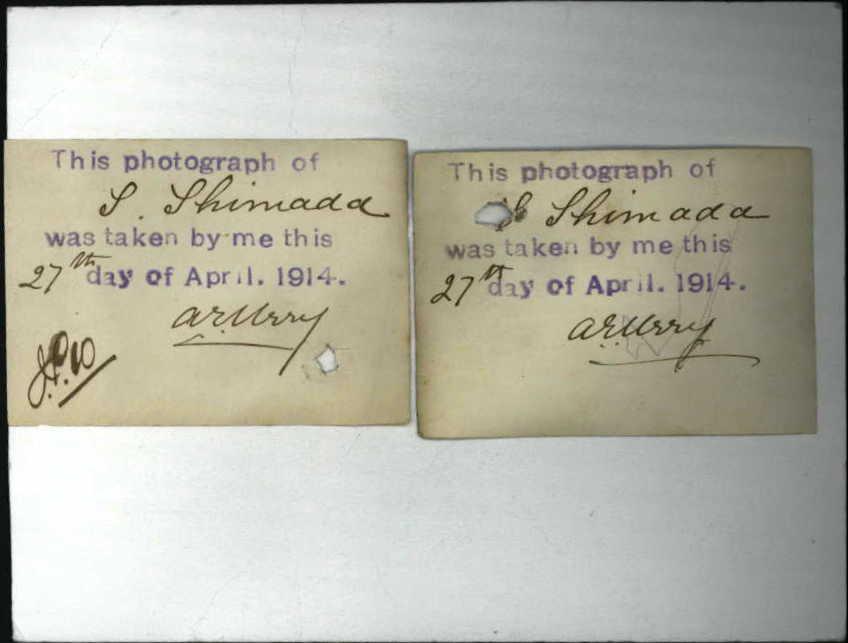 This photograph of
S. Shimada
was taken by me this
27th day of April. 1914.
A.E. Urry
This photograph of
S Shimada
was taken by me this
27th day of April. 1914.
A.E. Urry